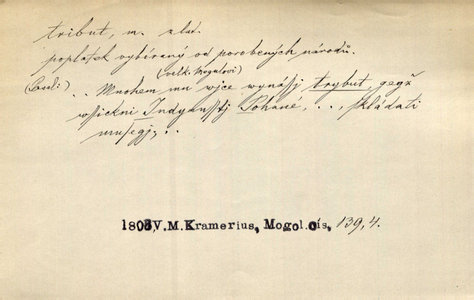 tribut, m. zlať.
poplatek vybíraný od porobených národů.
(velk. Mogolovi)
.. Mnohem mu wjce wynássj trybut, gegž
wssickni Indyanssstj Pohané, ..., skládati
musegj, ..
1803,V.M.Kramerius, Mogol.cís, 139,4.